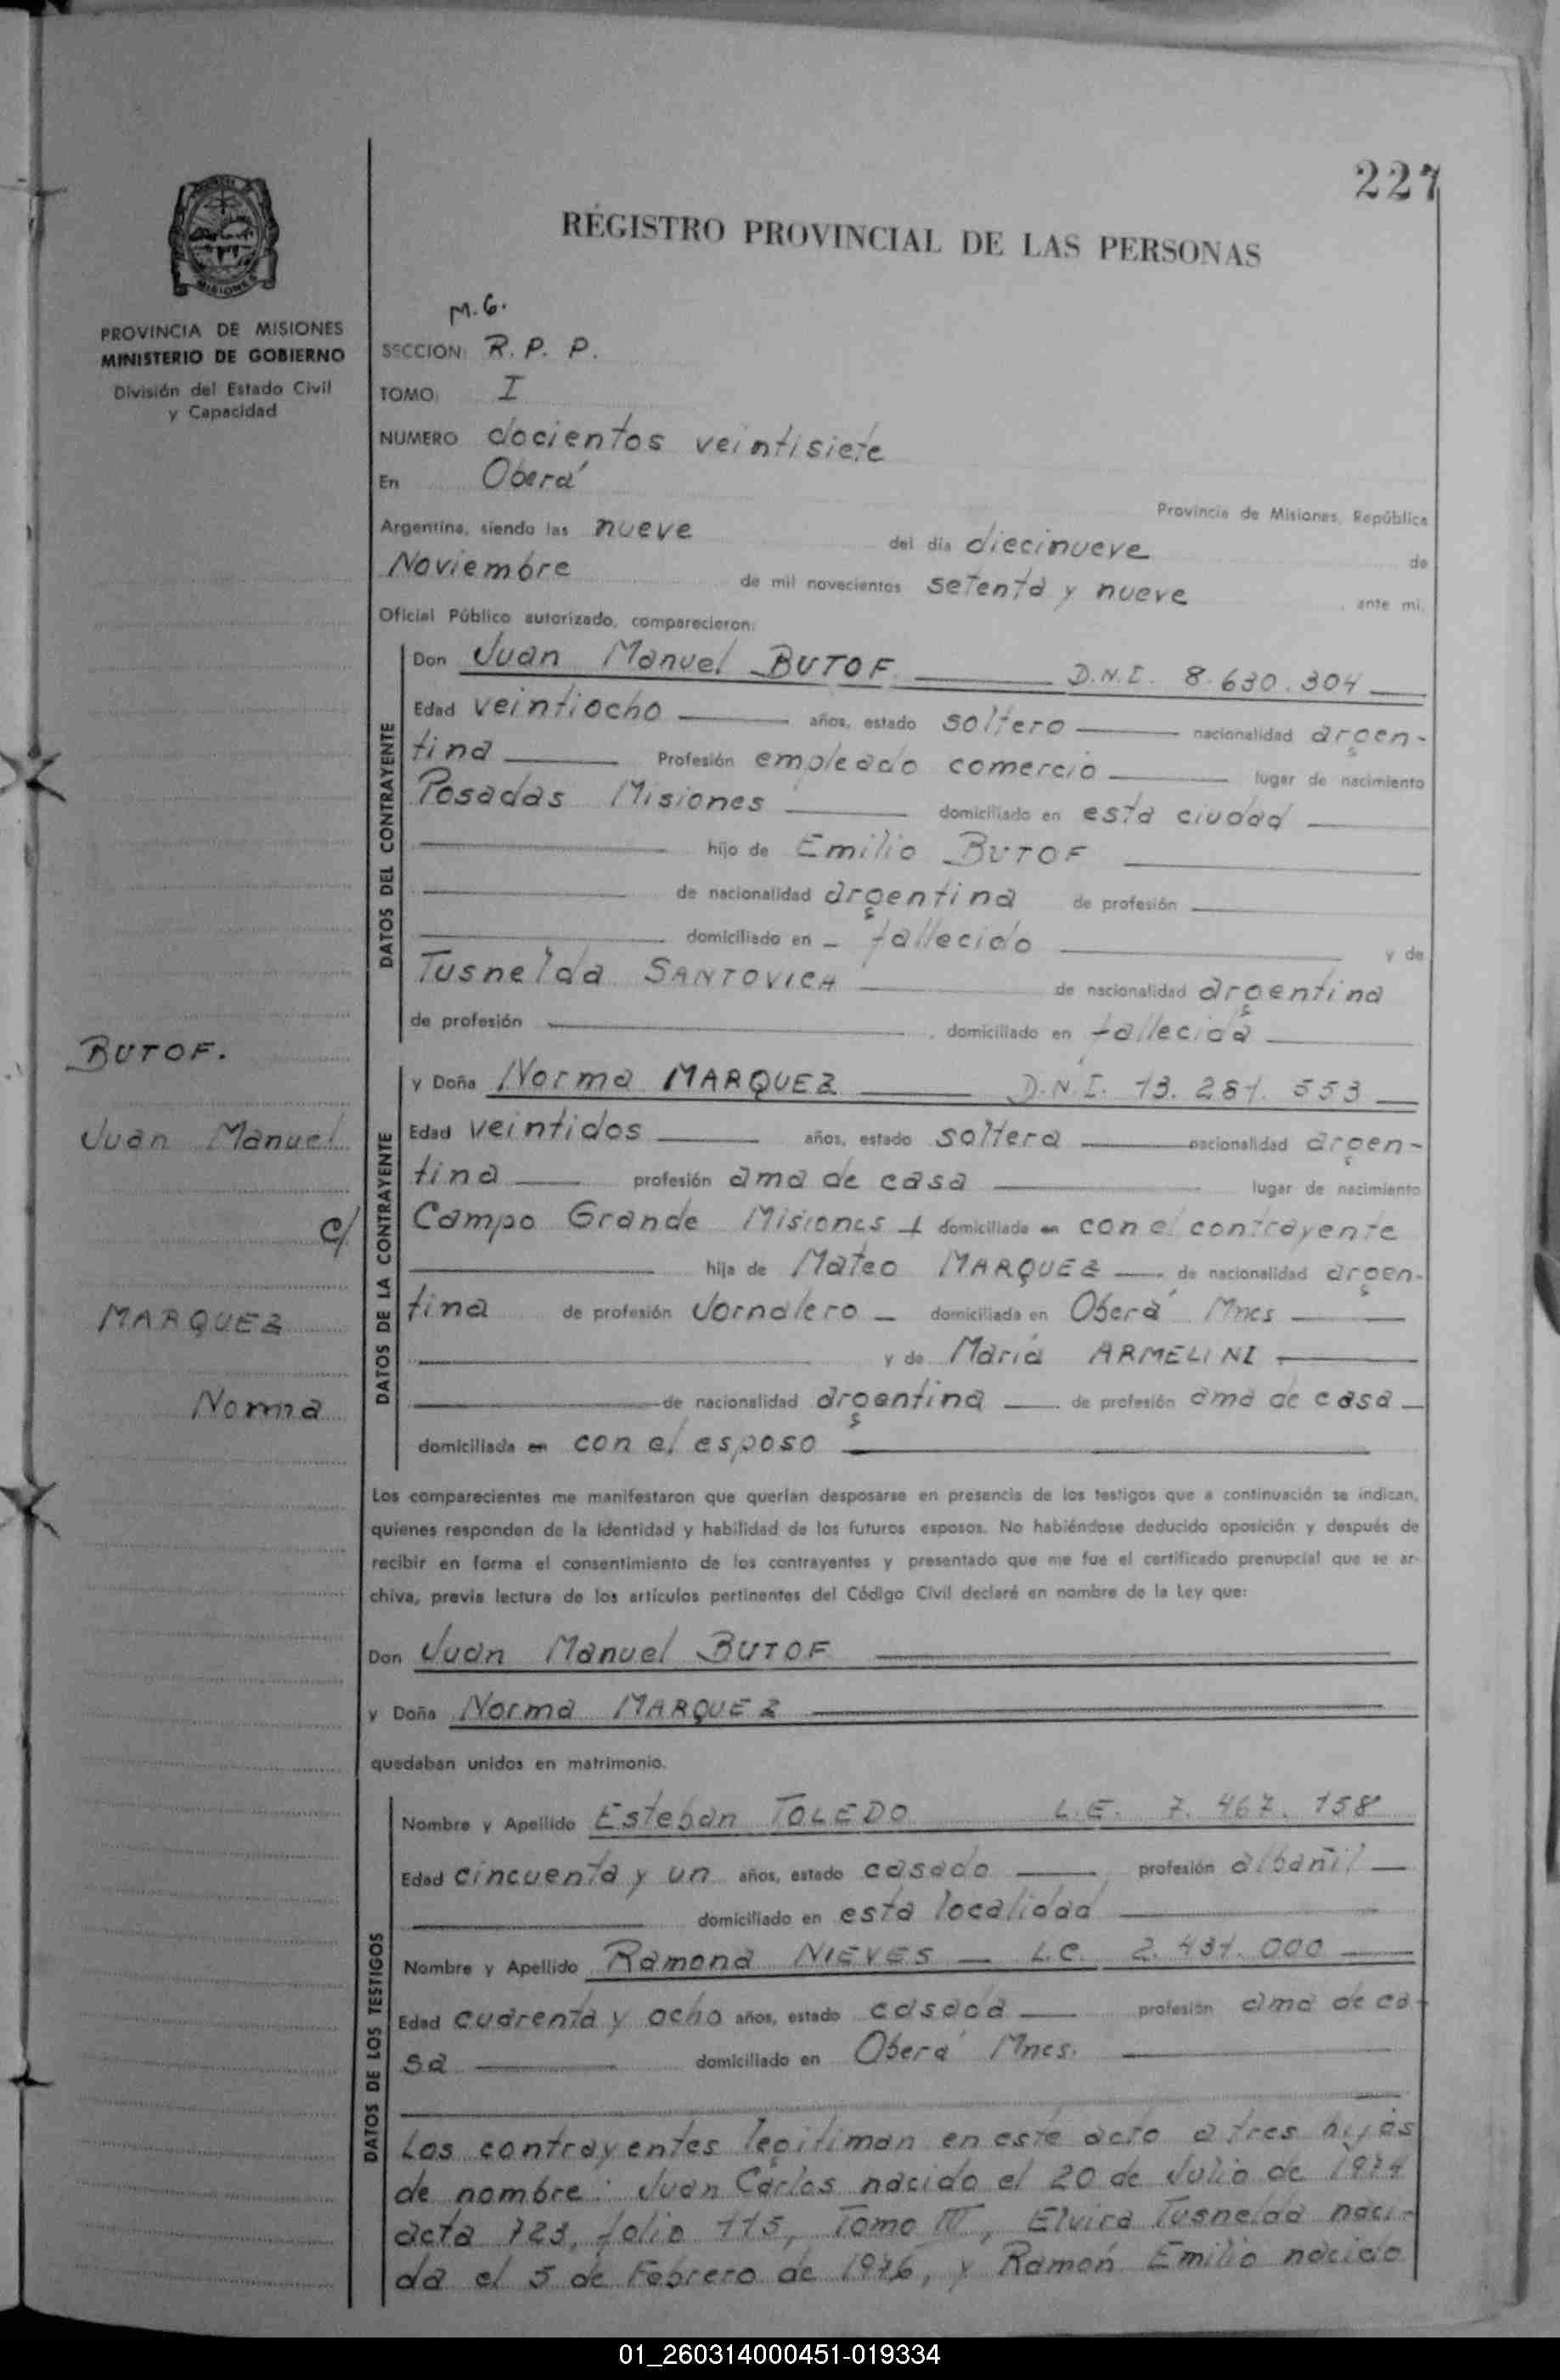 227
REGISTRO PROVINCIAL DE LAS PERSONAS
PROVINCIA DE MISIONES
MINISTERIO DE GOBIERNO
División del Estado Civil
y Capacidad
M.G.
SECCION: R. P. P.
TOMO: I
NUMERO docientos veintisiete
En Oberá
Provincia de Misiones, República
Argentina, siendo las nueve del día diecinueve de
Noviembre de mil novecientos setenta y nueve ante mi,
Oficial Público autorizado, comparecieron:
DATOS DEL CONTRAYENTE
Don Juan Manuel BUTOF D.N.I. 8.630.304
Edad veintiocho años, estado soltero nacionalidad argen-
tina Profesión empleado comercio lugar de nacimiento
Posadas Misiones domiciliado en esta ciudad
hijo de Emilio BUTOF
de nacionalidad argentina de profesión
domiciliado en fallecido y de
Tusnelda SANTOVICH de nacionalidad argentina
de profesión domiciliado en fallecida
BUTOF.
Juan Manuel
c/
MARQUEZ
Norma
DATOS DE LA CONTRAYENTE
y Doña Norma MARQUEZ D.N.I. 13.281.553
Edad veintidos años, estado soltera nacionalidad argen-
tina profesión ama de casa lugar de nacimiento
Campo Grande Misiones domiciliada en con el contrayente
hija de Mateo MARQUEZ de nacionalidad argen-
tina de profesión Jornalero domiciliada en Oberá Mnes
y de María ARMELINI
de nacionalidad argentina de profesión ama de casa
domiciliada en con el esposo
Los comparecientes me manifestaron que querían desposarse en presencia de los testigos que a continuación se indican,
quienes responden de la identidad y habilidad de los futuros esposos. No habiéndose deducido oposición y después de
recibir en forma el consentimiento de los contrayentes y presentado que me fue el certificado prenupcial que se ar-
chiva, previa lectura de los artículos pertinentes del Código Civil declaré en nombre de la Ley que:
Don Juan Manuel BUTOF
y Doña Norma MARQUEZ
quedaban unidos en matrimonio.
DATOS DE LOS TESTIGOS
Nombre y Apellido Esteban TOLEDO L.E. 7.467.158
Edad cincuenta y un años, estado casado profesión albañil
domiciliado en esta localidad
Nombre y Apellido Ramona NIEVES L.C. 2.431.000
Edad cuarenta y ocho años, estado casada profesión ama de ca-
sa domiciliado en Oberá Mnes.
Los contrayentes legitiman en este acto a tres hijos
de nombre: Juan Carlos nacido el 20 de Julio de 1974
acta 723, folio 115, Tomo III, Elvira Tusnelda naci-
da el 5 de Febrero de 1976, y Ramón Emilio nacido
01_260314000451-019334